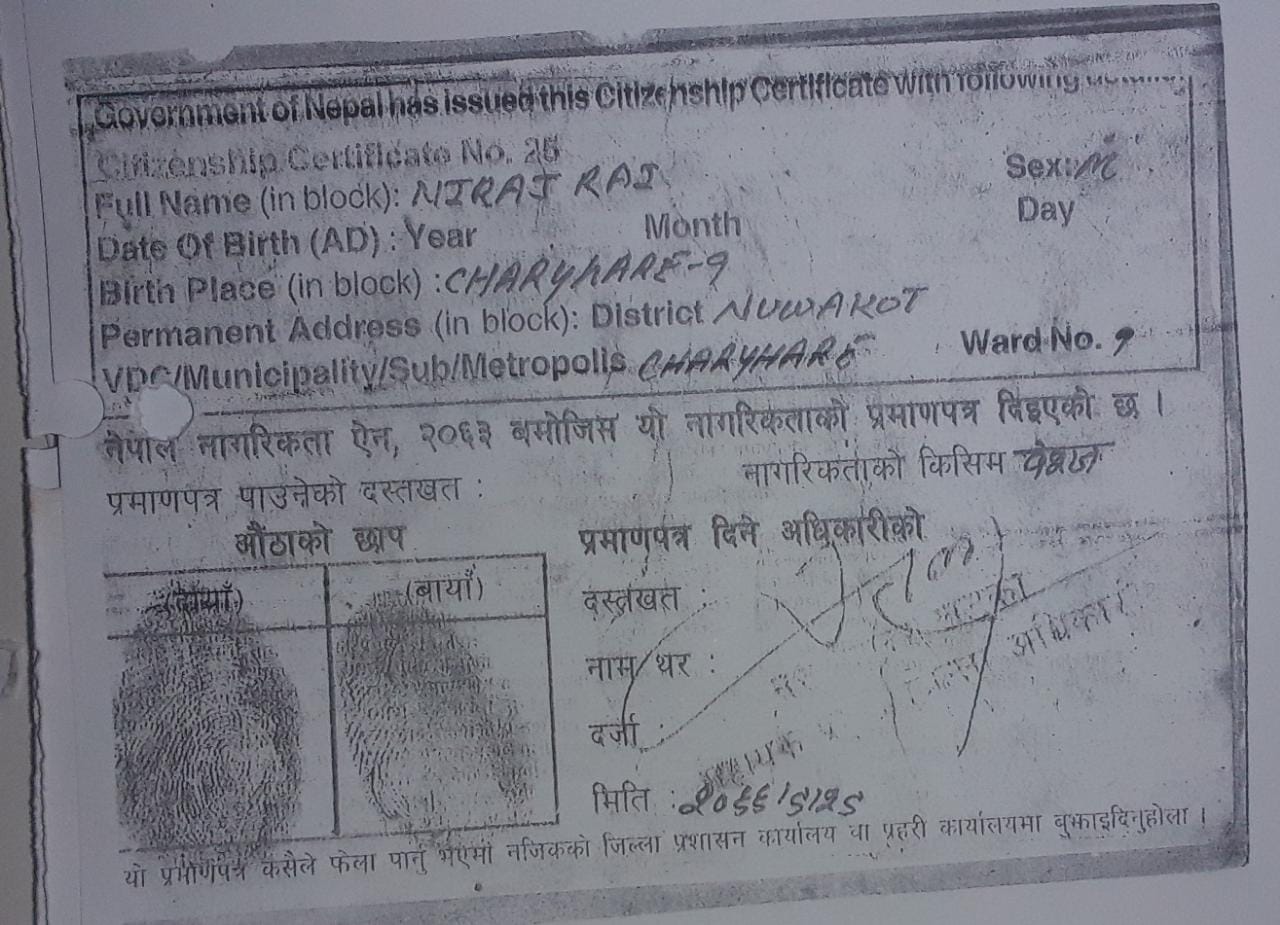 Government of Nepal has issued this Citizenship Certificate with following
Citizenship Certificate No. 25
Sex: M
Full Name (in block): NIRAJ RAI
Date Of Birth (AD) : Year Month Day
Birth Place (in block) : CHARYHARE-9
Permanent Address (in block): District NUWAKOT
VDC/Municipality/Sub/Metropolis CHARYHARE Ward No. 9
नेपाल नागरिकता ऐन, २०६३ बमोजिम यो नागरिकताको प्रमाणपत्र दिइएको छ ।
नागरिकताको किसिम वंशज
प्रमाणपत्र पाउनेको दस्तखत :
औंठाको छाप
प्रमाणपत्र दिने अधिकारीको
(दायाँ) (बायाँ)
दस्तखत :
नाम/थर :
अधिकारी
दर्जा :
मिति :
यो प्रमाणपत्र कसैले फेला पार्नु भएमा नजिकको जिल्ला प्रशासन कार्यालय वा प्रहरी कार्यालयमा बुझाइदिनुहोला ।